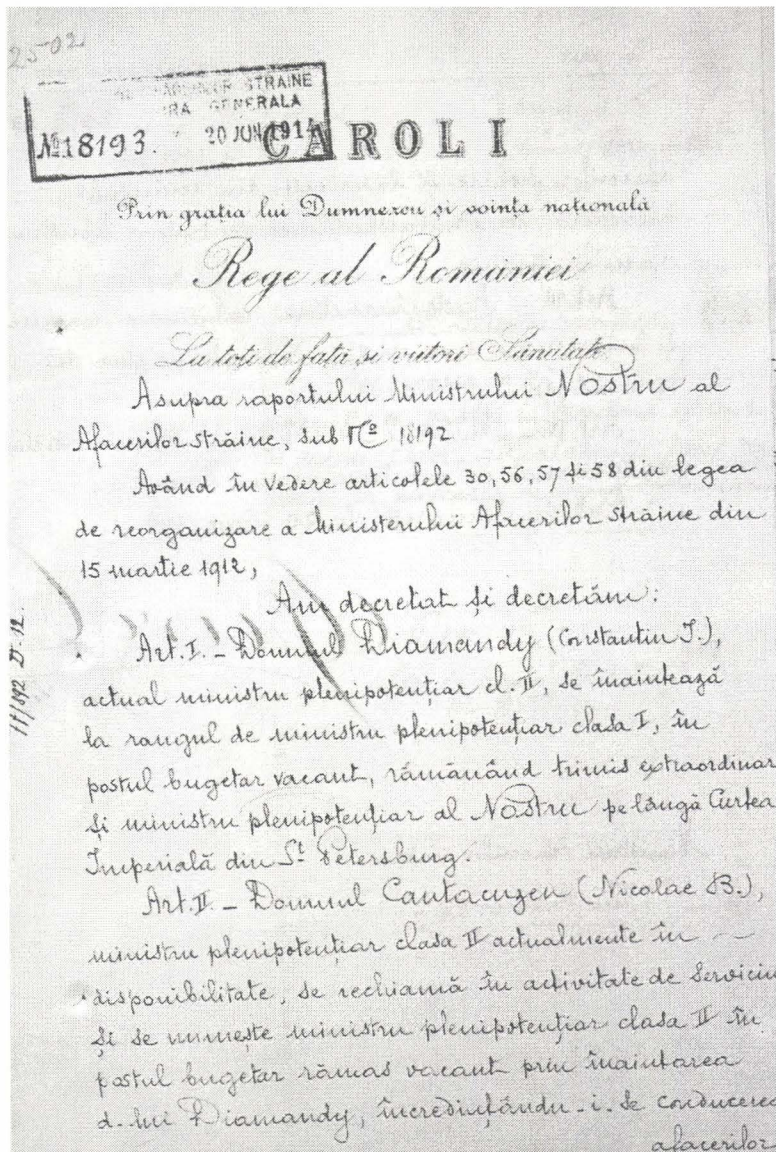 2502
STRAINE
GENERALA
№ 18193. 20 JUN 1914
CAROL I
Prin grația lui Dumnezeu și voința națională
Rege al Romaniei
La toți de față și viitori Sănătate
Asupra raportului Ministrului Nostru al
Afacerilor străine, sub № 18192
Având în vedere articolele 30, 56, 57 și 58 din legea
de reorganizare a Ministerului Afacerilor străine din
15 martie 1912,
Am decretat și decretăm:
Art. I. – Domnul Diamandy (Constantin I.),
actual ministru plenipotențiar cl. II, se înaintează
la rangul de ministru plenipotențiar clasa I, în
postul bugetar vacant, rămânând trimis extraordinar
și ministru plenipotențiar al Nostru pe lângă Curtea
Imperială din St Petersburg.
Art. II. – Domnul Cantacuzen (Nicolae B.),
ministru plenipotențiar clasa II actualmente în
disponibilitate, se rechiamă în activitate de serviciu
și se numește ministru plenipotențiar clasa II în
postul bugetar rămas vacant prin înaintarea
d-lui Diamandy, încredințându-i-se conducerea
afacerilor